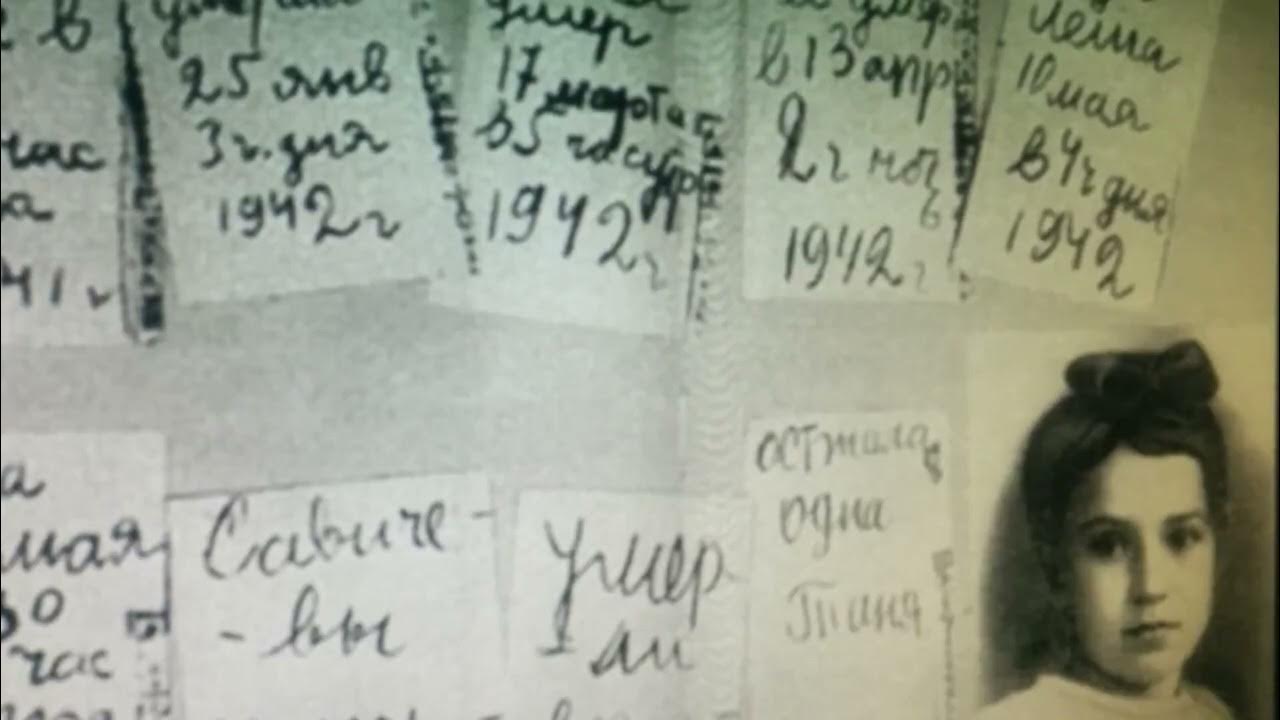 25 янв
3 ч. дня
1942 г
умер
17 марта
в 5 час утра
1942 г
в 13 апр
2 ч ночь
1942 г
Леша
10 мая
в 4 ч дня
1942
час
а
41 г
а
мая
30
час
Савиче-
-вы
Умер
-ли
осталась
одна
Таня